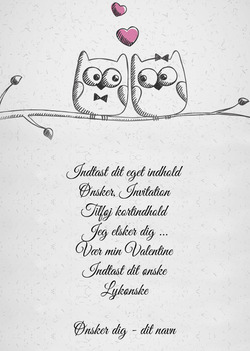 Indtast dit eget indhold
Ønsker, Invitation
Tilføj kortindhold
Jeg elsker dig ...
Vær min Valentine
Indtast dit onske
Lykonske
Ønsker dig - dit navn